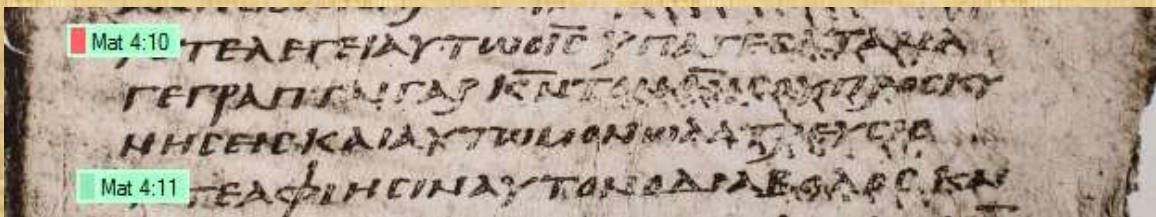 Mat 4:10 ΤΕΛΕΓΕΙΑΥΤΩΟΙ̅С̅ ΥΠΑΓΕСΑΤΑΝΑ
ΓΕΓΡΑΠΤΑΙΓΑΡ Κ̅Ν̅ΤΟΝΘ̅Ν̅СΟΥΠΡΟСΚΥ
ΝΗСΕΙС·ΚΑΙΑΥΤΩΜΟΝΩΛΑΤΡΕΥСΙС
Mat 4:11 ΤΕΑΦΙΗСΙΝΑΥΤΟΝΟΔΙΑΒΟΛΟС·ΚΑΙ